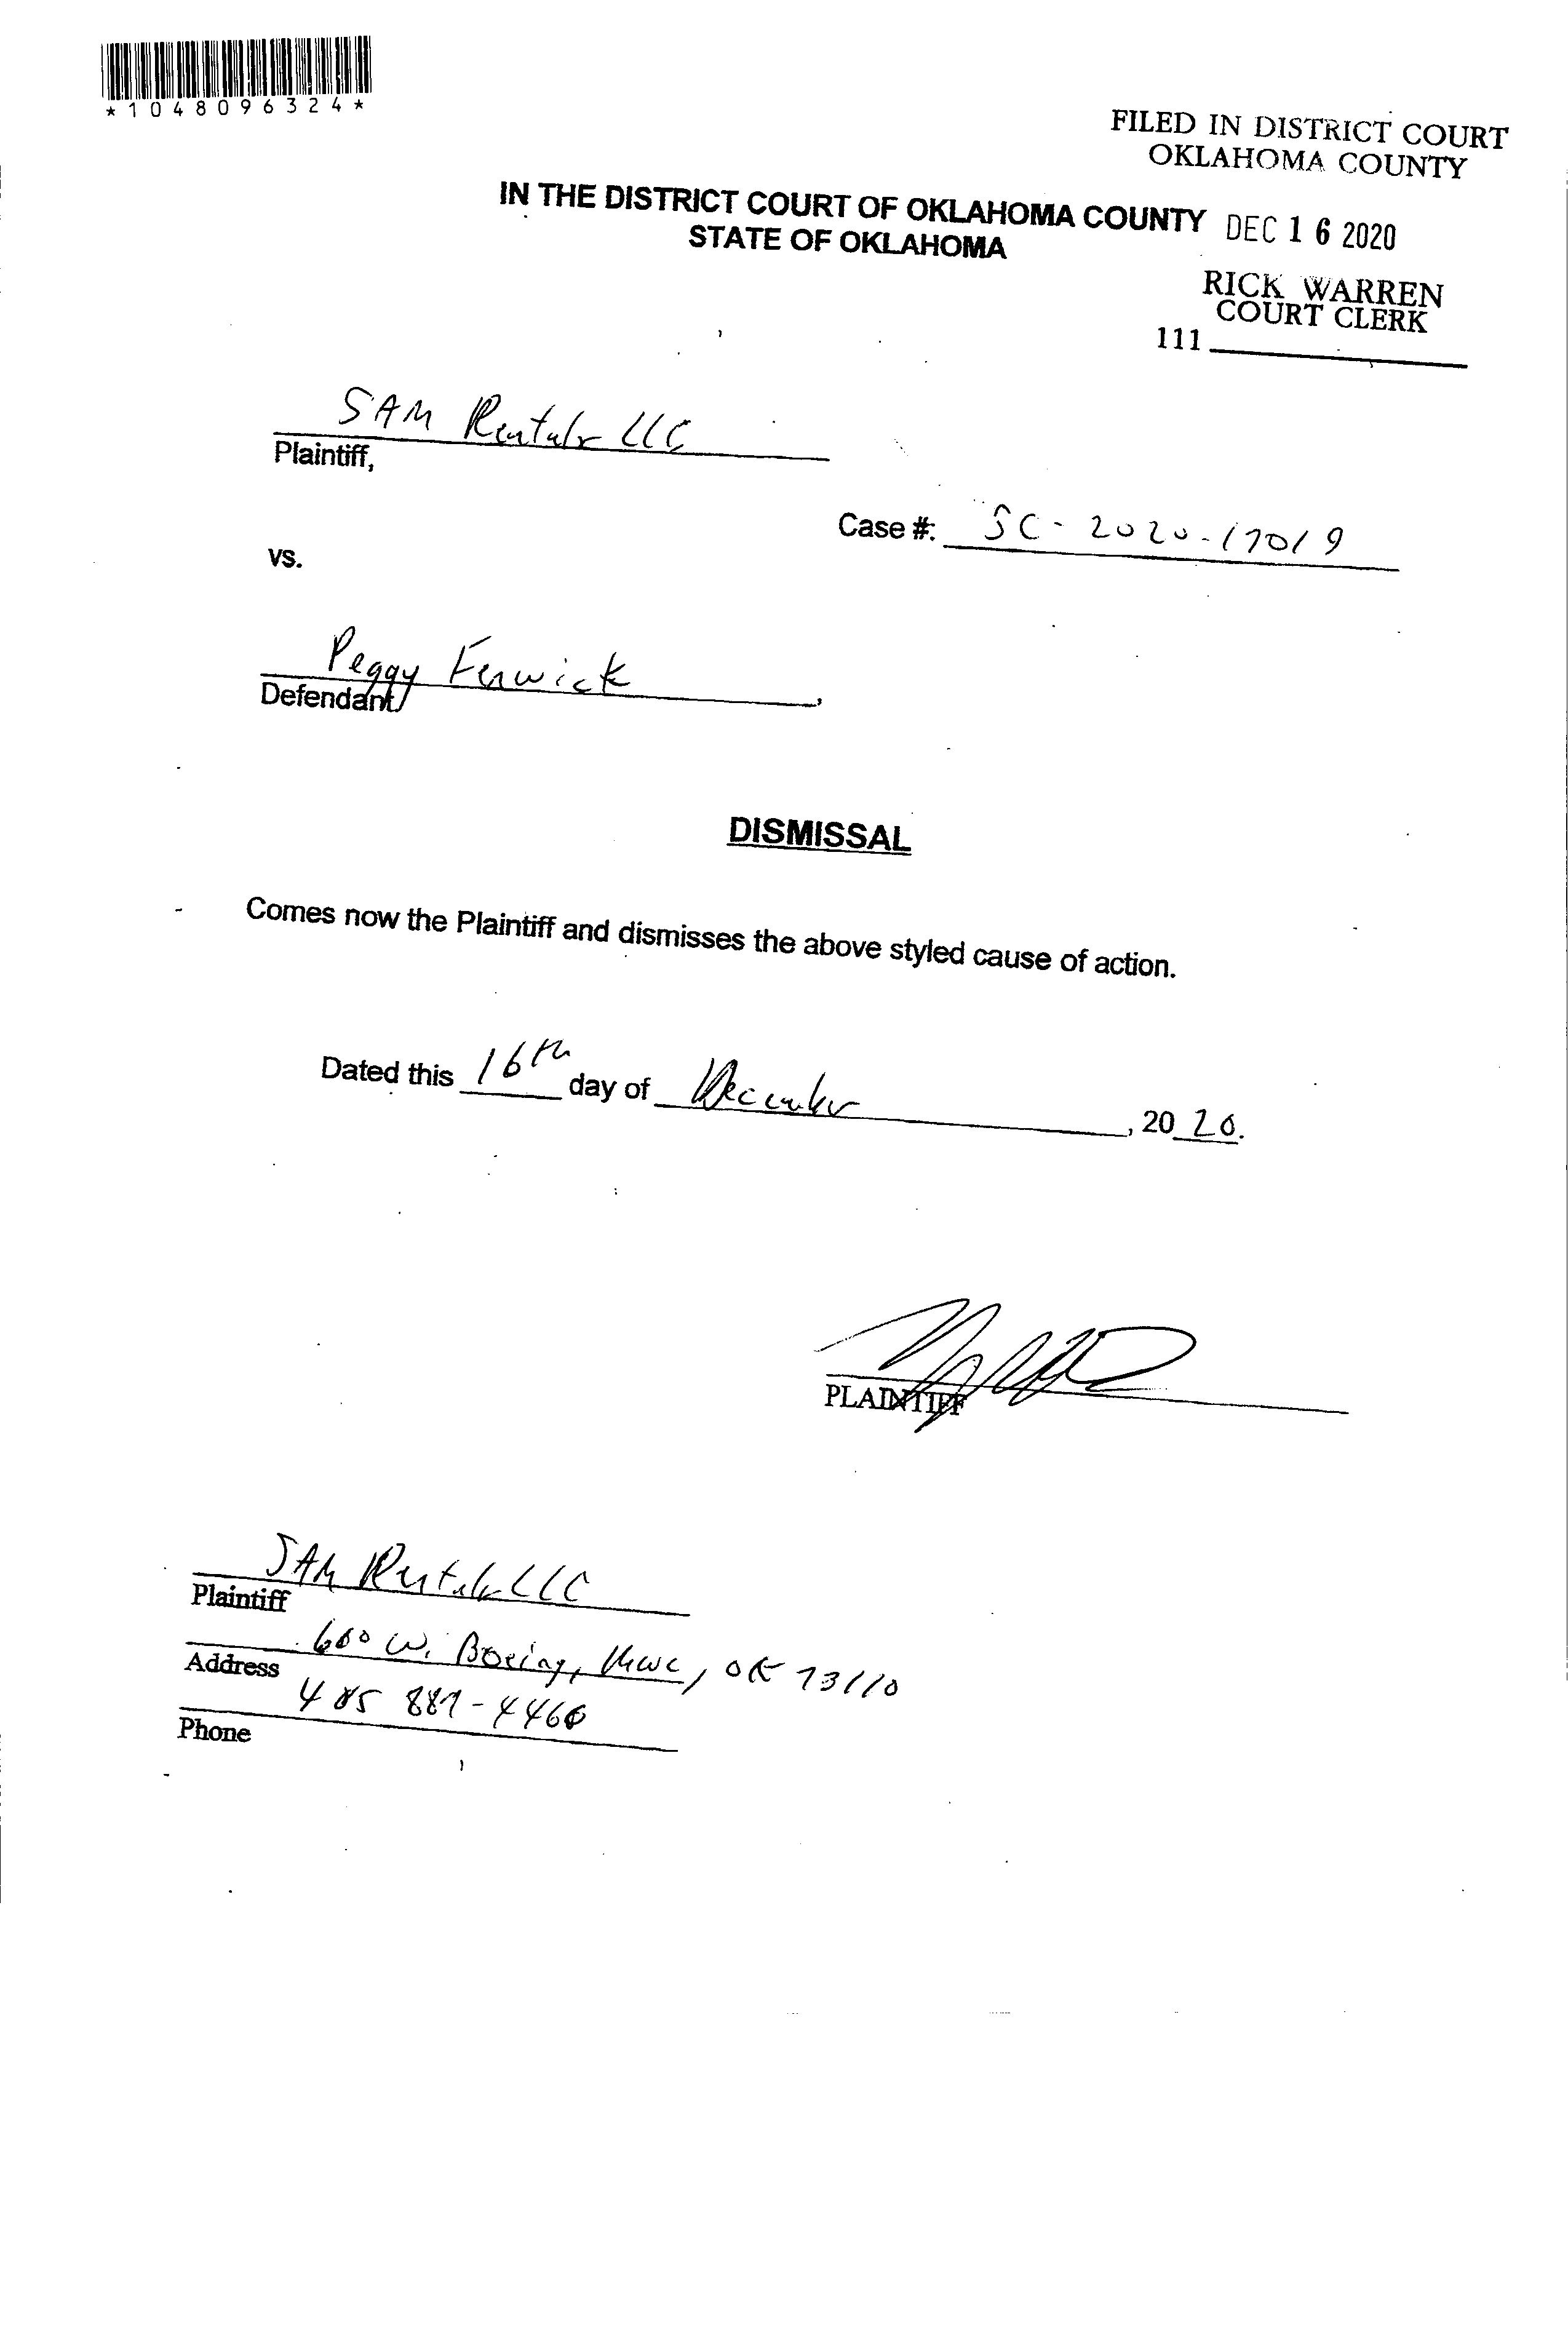 *1048096324*
FILED IN DISTRICT COURT
OKLAHOMA COUNTY
IN THE DISTRICT COURT OF OKLAHOMA COUNTY
STATE OF OKLAHOMA
DEC 16 2020
RICK WARREN
COURT CLERK
111
SAM Rentals LLC
Plaintiff,
Case #: SC-2020-17019
vs.
Peggy Fenwick
Defendant,
DISMISSAL
Comes now the Plaintiff and dismisses the above styled cause of action.
Dated this 16th day of December, 2020.
PLAINTIFF
SAM Rentals LLC
Plaintiff
600 W. Boeing, MWC, OK 73110
Address
405 887-4460
Phone